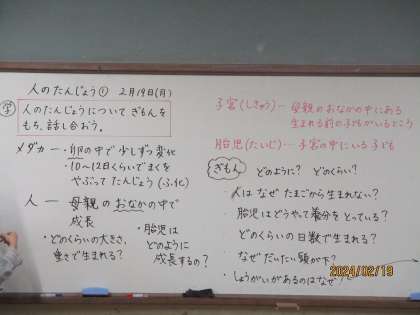 人のたんじょう① 2月19日(月)
学
人のたんじょうについてぎもんを
もち、話し合おう。
メダカー・卵の中で少しずつ変化
・10〜12日くらいでまくを
やぶってたんじょう(ふ化)
人 ー 母親のおなかの中で
成長
・どのくらいの大きさ、
重さで生まれる?
・胎児は
どのように
成長するの?
子宮(しきゅう)… 母親のおなかの中にある
生まれる前の子どもがいるところ
胎児(たいじ)… 子宮の中にいる子ども
ぎもん どのように? どのくらい?
・人はなぜたまごから生まれない?
・胎児はどうやって養分をとっている?
・どのくらいの日数で生まれる?
・なぜだいたい頭が下?
・しょうがいがあるのはなぜ?
2024/02/19